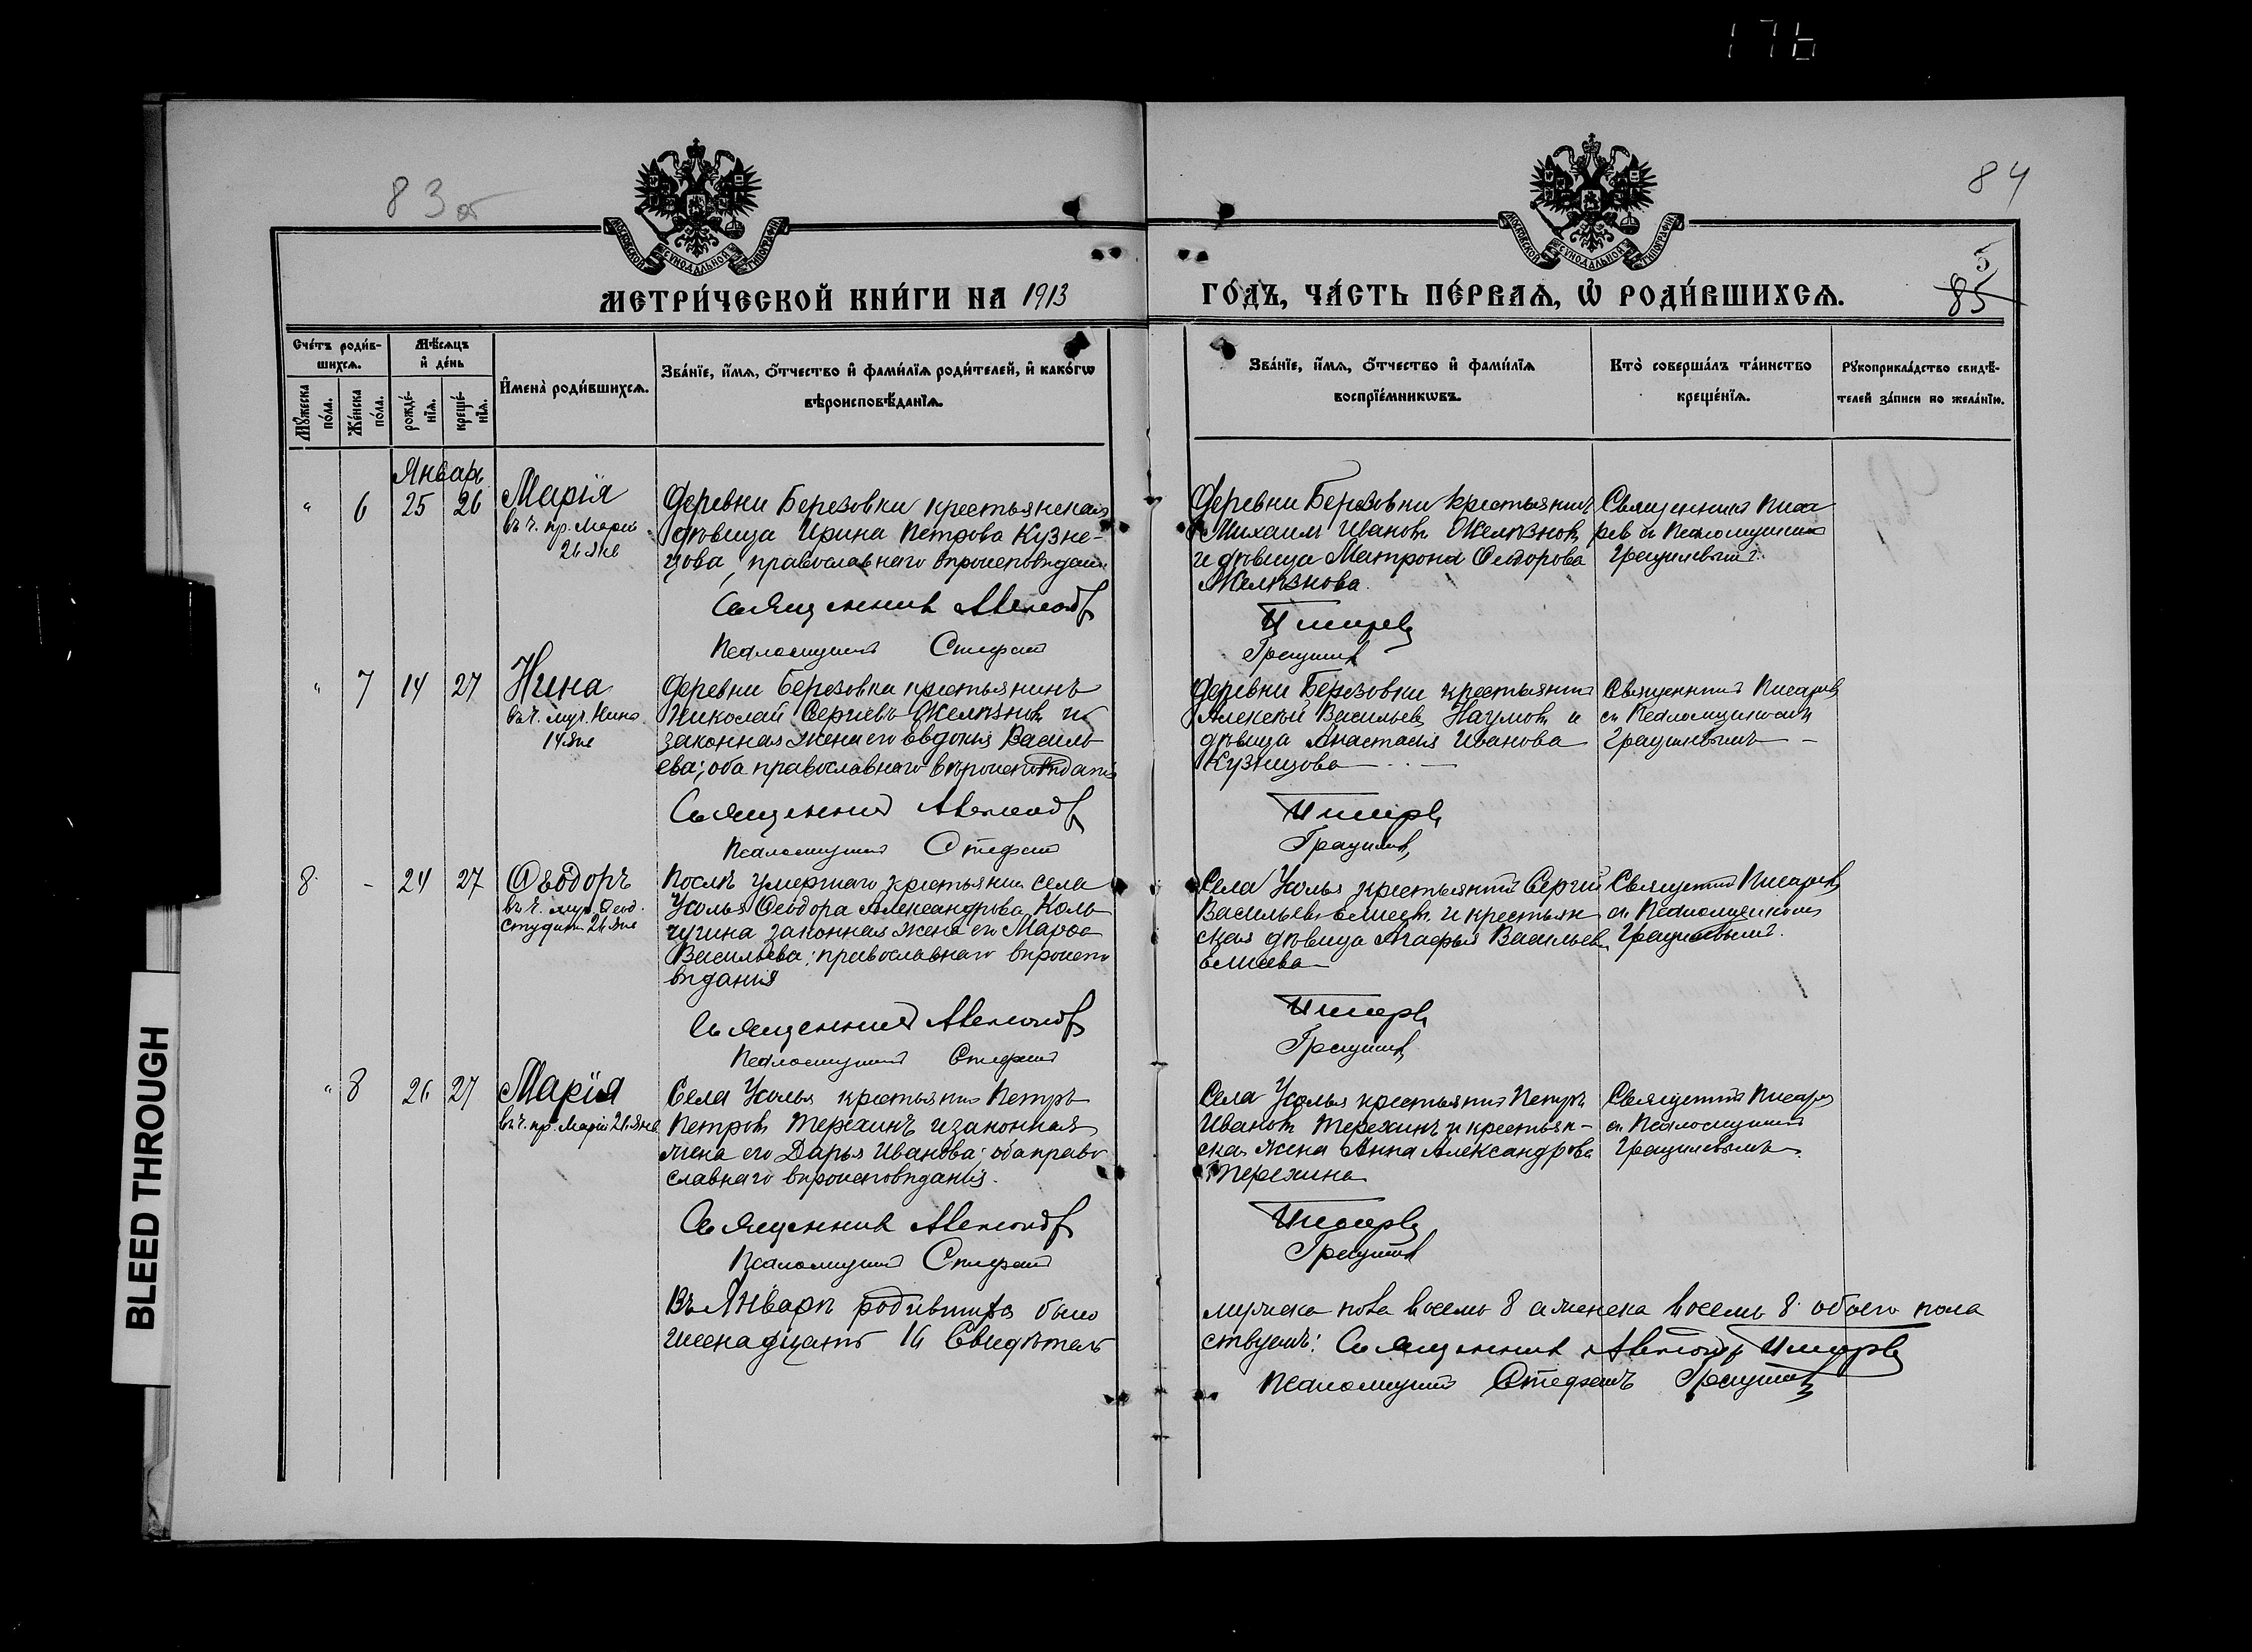 176
83об
84
МОСКОВСКОЙ СѴНОДАЛЬНОЙ ТИПОГРАФІИ
МОСКОВСКОЙ СѴНОДАЛЬНОЙ ТИПОГРАФІИ
5
85
МЕТРИ́ЧЕСКОЙ КНИ́ГИ НА 1913
ГО́ДЪ, ЧА́СТЬ ПЕ́РВАѦ, Ѡ҆ РОДИ́ВШИХСѦ.
Сче́тъ роди́в-
шихсѧ.
Мѣ́сѧцъ
и҆ де́нь
Мꙋ́жеска
по́ла.
Же́нска
по́ла.
рожде́-
нїѧ.
креще́-
нїѧ.
И҆мена̀ роди́вшихсѧ.
Зва́нїе, и҆́мѧ, ѻ҆́тчество и҆ фами́лїѧ роди́телей, и҆ како́гѡ
вѣроисповѣ́данїѧ.
Зва́нїе, и҆́мѧ, ѻ҆́тчество и҆ фами́лїѧ
воспрїе́мникѡвъ.
Кто̀ соверша́лъ та́инство
креще́нїѧ.
Рꙋкоприкла́дство свидѣ́-
телей за́писи по жела́нїю.
Январь
" 6 25 26 Марія
въ ч. пр. Маріи
26 янв
Деревни Березовки крестьянская
дѣвица Ирина Петрова Кузне-
цова, православнаго вѣроисповѣдан
Священник
Псаломщик Стефан
Деревни Березовки крестьянинъ
Михаил Иванов Желѣзнов
и дѣвица Матрона Ѳеодорова
Желѣзнова.
Писарев
Грацилев
Священник Писа
рев съ Псаломщиком
Грацилевым.
" 7 14 27 Нина
въ ч. муч. Нины
14 янв
Деревни Березовки крестьянинъ
Николай Сергѣевъ Желѣзнов и
законная жена его Евдокія Василь
ева; оба православнаго вѣроисповѣданія
Священник
Псаломщик Стефан
Деревни Березовки крестьянин
Алексѣй Васильев Наумов и
дѣвица Анастасія Иванова
Кузнецова
Писарев
Грацилев
Священник Писарев
съ Псаломщиком
Грацилевымъ
8 - 24 27 Ѳеодоръ
въ ч. Ѳеод.
студит 26 янв
Послѣ умершаго крестьянина села
Усолья Ѳеодора Александрова Коль
чугина законная жена его Марѳа
Васильева; православнаго вѣроиспо
вѣданія
Священник
Псаломщик Стефан
Села Усолья крестьянин Сергѣй
Васильев и крестьян
ская дѣвица Агафья Васильев
Писарев
Грацилев
Священник Писарев
съ Псаломщиком
Грацилевым.
" 8 26 27 Марія
въ ч. пр. Маріи 26 янв
Села Усолья крестьянин Петръ
Петров Терехинъ и законная
жена его Дарья Иванова; оба право
славнаго вѣроисповѣданія.
Священник
Псаломщик Стефан
Села Усолья крестьянин Петръ
Иванов Терехинъ и крестьян-
ская жена Анна Александрова
Терехина
Писарев
Грацилев
Священник Писарев
съ Псаломщик
Грацилевымъ
Въ Январѣ родившихся было
мужска пола восемь 8 а женска восемь 8 обоего пола
шеснадцать 16 Свидѣтель
ствуемъ: Священник Писарев
Псаломщик Стефанъ Грацилев
BLEED THROUGH